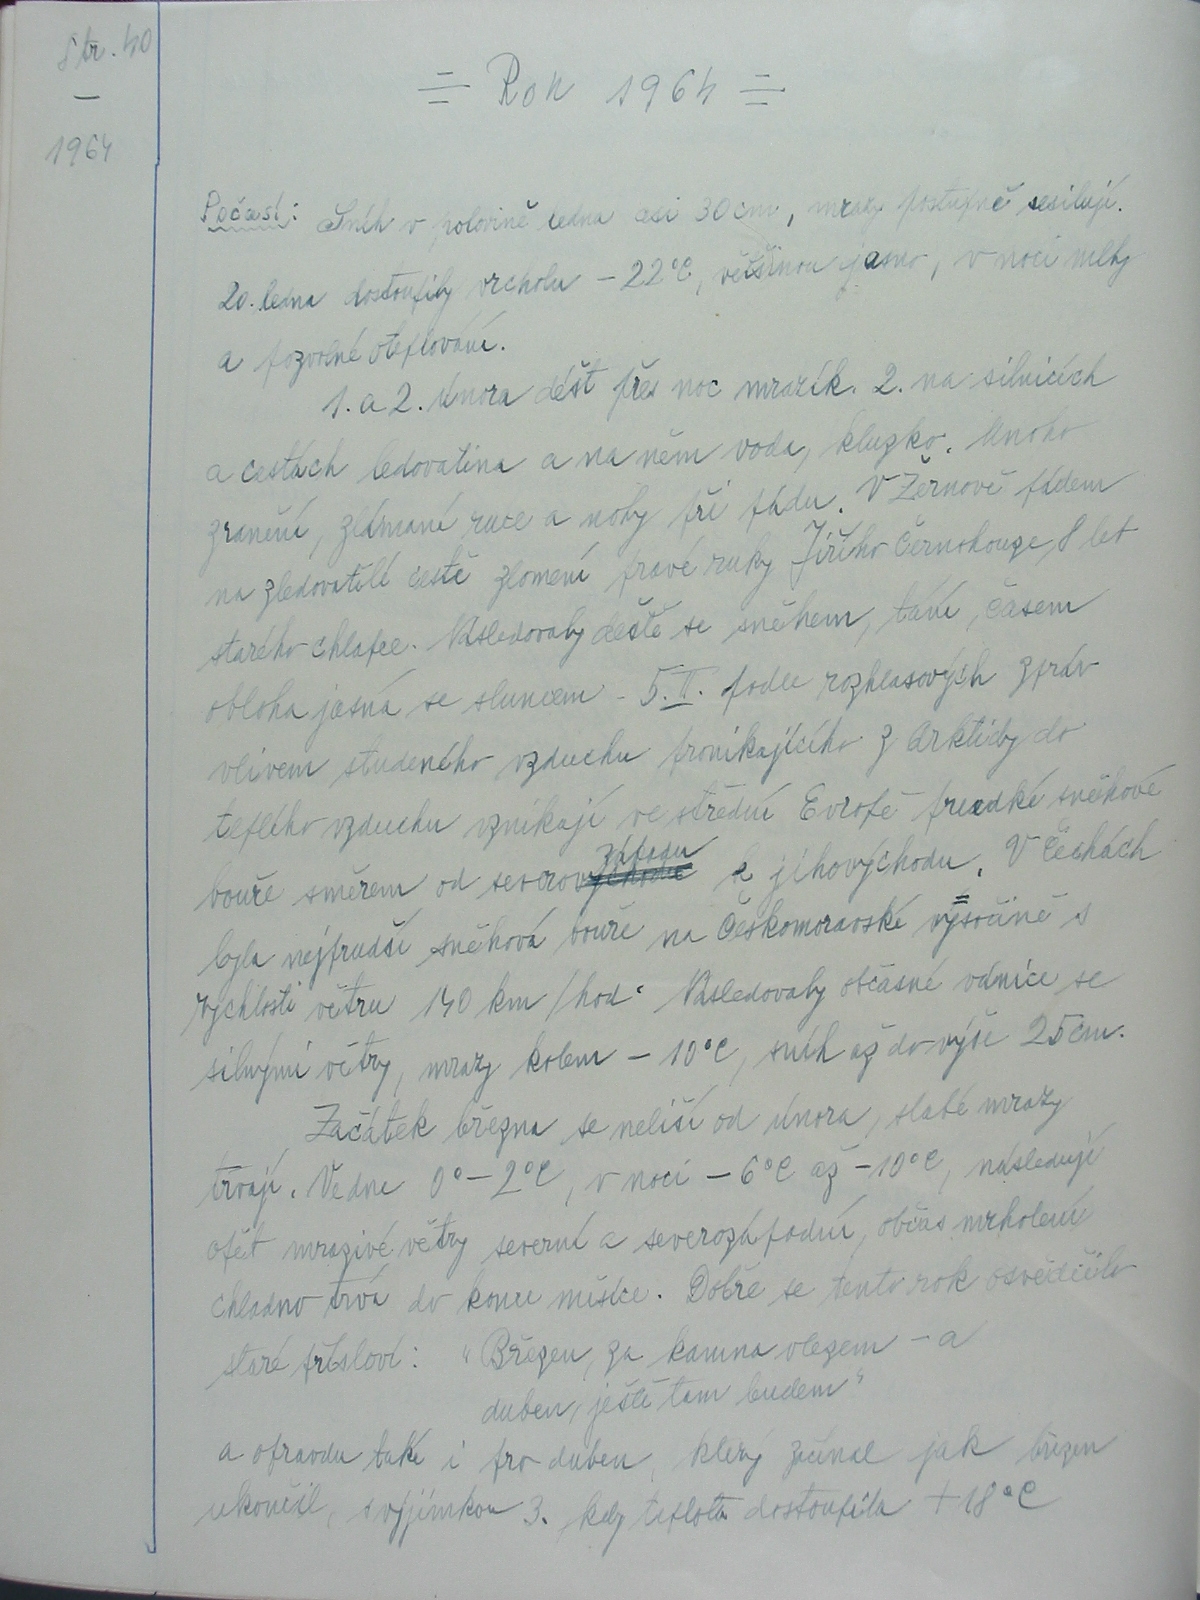 Str. 40
—
1964
Rok 1964
Počasí: Sníh v polovině ledna asi 30 cm, mrazy postupně sesilují.
20. ledna dostoupily vrcholu – 22°C, většinou jasno, v noci mlhy
a pozvolné oteplování.
1. a 2. února déšť přes noc mrazík. 2. na silnicích
a cestách ledovatina a na něm voda, kluzko. Mnoho
zranění, zlámané ruce a nohy při pádu. V Žernově pádem
na zledovatělé cestě zlomení pravé ruky Jiřího Černohouze, 8 let
starého chlapce. Následovaly deště se sněhem, tání, časem
obloha jasná se sluncem – 5. II. podle rozhlasových zpráv
vlivem studeného vzduchu pronikajícího z Arktidy do
teplého vzduchu vznikají ve střední Evropě prudké sněhové
bouře směrem od severozápadu k jihovýchodu. V Čechách
byla nejprudší sněhová bouře na Českomoravské vysočině s
rychlostí větru 140 km/hod. Následovaly občasné vánice se
silnými větry, mrazy kolem – 10°C, sníh až do výše 25 cm.
Začátek března se neliší od února, slabé mrazy
trvají. Ve dne 0° – 2°C, v noci – 6°C až – 10°C, následují
opět mrazivé větry severní a severozápadní, občas mrholení
chladno trvá do konce měsíce. Dobře se tento rok osvědčilo
staré přísloví: „Březen, za kamna vlezem – a
duben, ještě tam budem"
a opravdu také i pro duben, který začínal jak březen
ukončil, s vyjímkou 3. kdy teplota dostoupila + 18°C